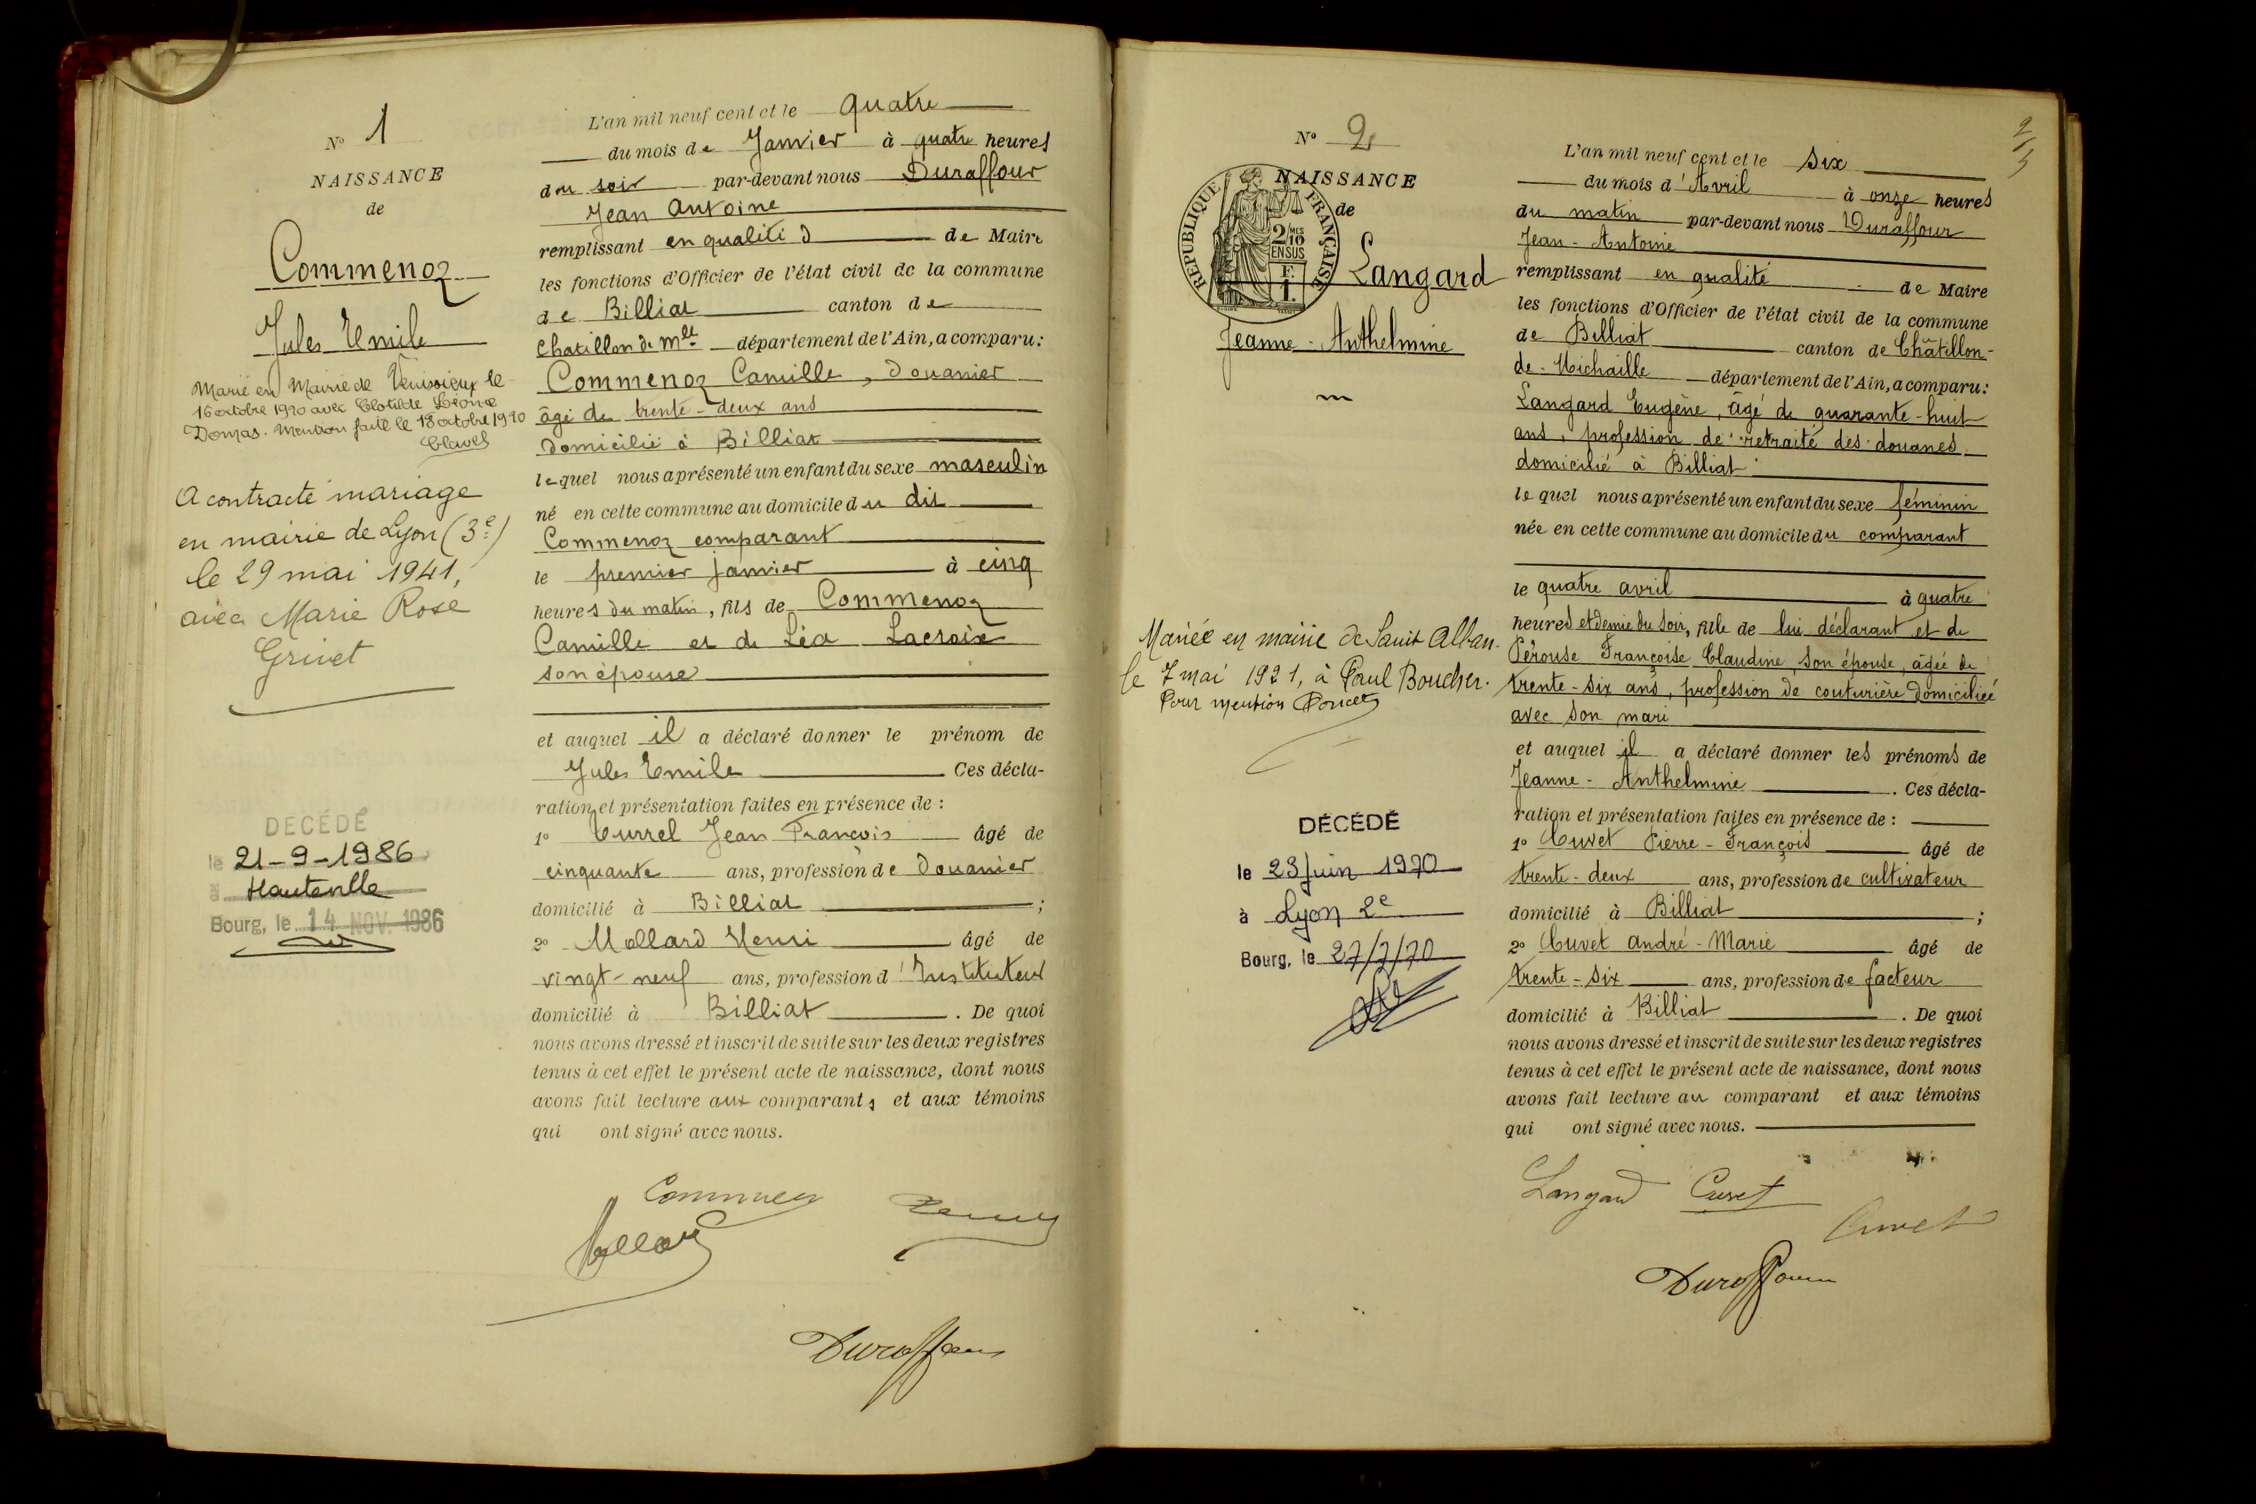 N° 1
NAISSANCE
de
Commenoz
Jules Emile
Marié en Mairie de Vénissieux le
16 octobre 1920 avec Clotilde Léonie
Domas. Mention faite le 18 octobre 1920
Clavel
A contracté mariage
en mairie de Lyon (3e)
le 29 mai 1941,
avec Marie Rose
Grivet
DÉCÉDÉ
le 21-9-1986
à Hauteville
Bourg, le 14 NOV. 1986
L'an mil neuf cent et le quatre
du mois de Janvier à quatre heures
du soir par-devant nous Duraffour
Jean Antoine
remplissant en qualité d de Maire
les fonctions d'Officier de l'état civil de la commune
de Billiat canton de
Chatillon de Mlle département de l'Ain, a comparu:
Commenoz Camille, Douanier
âgé de trente-deux ans
domicilié à Billiat
lequel nous a présenté un enfant du sexe masculin
né en cette commune au domicile du dit
Commenoz comparant
le premier janvier à cinq
heures du matin, fils de Commenoz
Camille et de Léa Lacroix
son épouse
et auquel il a déclaré donner le prénom de
Jules Emile Ces décla-
ration et présentation faites en présence de :
1° Currel Jean François âgé de
cinquante ans, profession de Douanier
domicilié à Billiat ;
2° Mollard Henri âgé de
vingt-neuf ans, profession d'Instituteur
domicilié à Billiat . De quoi
nous avons dressé et inscrit de suite sur les deux registres
tenus à cet effet le présent acte de naissance, dont nous
avons fait lecture aux comparants et aux témoins
qui ont signé avec nous.
Commenoz
Mollard
Duraffour
2
N° 2
NAISSANCE
de
REPUBLIQUE FRANÇAISE
2/10 MES
EN SUS
F.
1.
Langard
Jeanne-Anthelmine
Mariée en mairie de Saint Alban.
le 7 mai 1921, à Paul Boucher.
Pour mention Poncet
DÉCÉDÉ
le 23 Juin 1970
à Lyon 2e
Bourg, le 27/7/70
L'an mil neuf cent et le six
du mois d'Avril à onze heures
du matin par-devant nous Duraffour
Jean-Antoine
remplissant en qualité de Maire
les fonctions d'Officier de l'état civil de la commune
de Billiat canton de Châtillon-
de-Michaille département de l'Ain, a comparu:
Langard Eugène, âgé de quarante-huit
ans, profession de retraité des douanes
domicilié à Billiat
lequel nous a présenté un enfant du sexe féminin
née en cette commune au domicile du comparant
le quatre avril à quatre
heures et demie du soir, fille de lui déclarant et de
Pérouse Françoise Claudine son épouse, âgée de
trente-six ans, profession de couturière domiciliée
avec son mari
et auquel il a déclaré donner les prénoms de
Jeanne-Anthelmine . Ces décla-
ration et présentation faites en présence de :
1° Cuvet Pierre-François âgé de
trente-deux ans, profession de cultivateur
domicilié à Billiat ;
2° Cuvet André-Marie âgé de
trente-six ans, profession de facteur
domicilié à Billiat . De quoi
nous avons dressé et inscrit de suite sur les deux registres
tenus à cet effet le présent acte de naissance, dont nous
avons fait lecture au comparant et aux témoins
qui ont signé avec nous.
Langard Cuvet
Cuvet
Duraffour